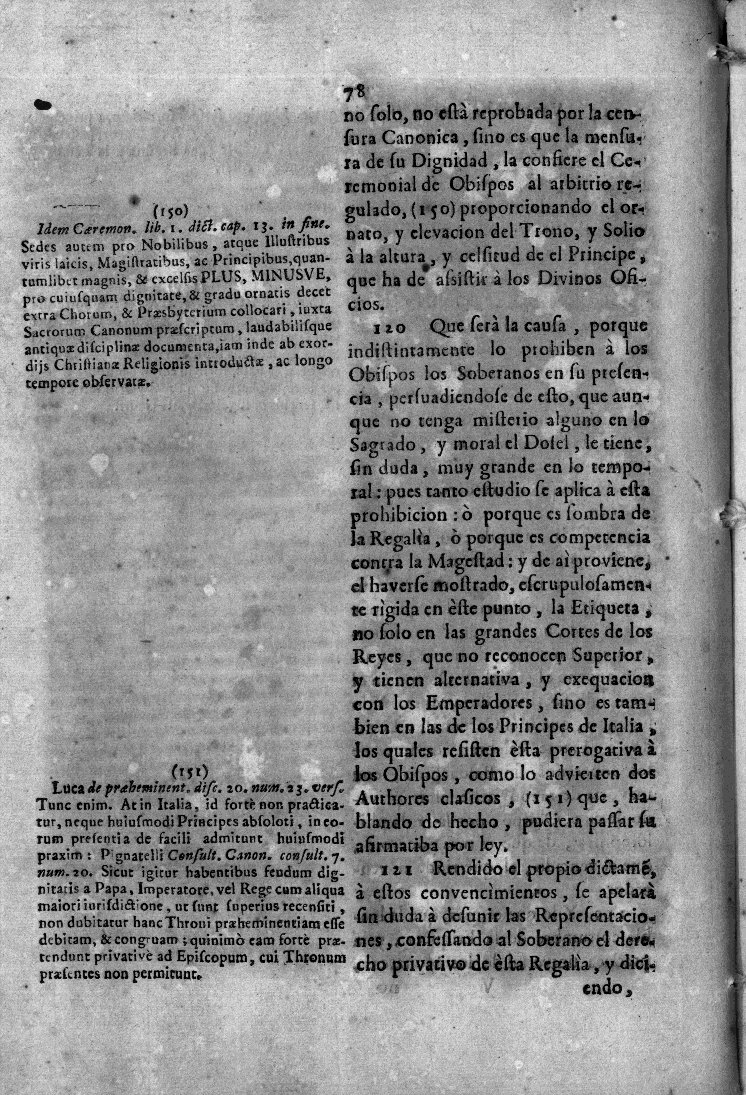 78
no ſolo, no eſtà reprobada por la cen-
ſura Canonica, ſino es que la menſu-
ra de ſu Dignidad, la confiere el Ce-
remonial de Obiſpos al arbitrio re-
gulado, (150) proporcionando el or-
nato, y elevacion del Trono, y Solio
à la altura, y celſitud de el Principe,
que ha de aſsiſtir à los Divinos Ofi-
cios.
120 Que ſerà la cauſa, porque
indiſtintamente lo prohiben à los
Obiſpos los Soberanos en ſu preſen-
cia, perſuadiendoſe de eſto, que aun-
que no tenga miſterio alguno en lo
Sagrado, y moral el Doſel, le tiene,
ſin duda, muy grande en lo tempo-
ral: pues tanto eſtudio ſe aplica à eſta
prohibicion: ò porque es ſombra de
la Regalìa, ò porque es competencia
contra la Mageſtad: y de aì proviene,
el haverſe moſtrado, eſcrupuloſamen-
te rìgida en èſte punto, la Etiqueta,
no ſolo en las grandes Cortes de los
Reyes, que no reconocen Superior,
y tienen alternativa, y exequacion
con los Emperadores, ſino es tam-
bien en las de los Principes de Italia,
los quales reſiſten èſta prerogativa à
los Obiſpos, como lo advierten dos
Authores claſicos, (151) que, ha-
blando de hecho, pudiera paſſar ſu
afirmatiba por ley.
121 Rendido el propio dictamẽ,
à eſtos convencimientos, ſe apelarà
ſin duda à deſunir las Repreſentacio-
nes, confeſſando al Soberano el dere-
cho privativo de èſta Regalìa, y dici-
endo,
(150)
Idem Cæremon. lib. 1. dict. cap. 13. in fine.
Sedes autem pro Nobilibus, atque Illuſtribus
viris laicis, Magiſtratibus, ac Principibus, quan-
tumlibet magnis, & excelſis PLUS, MINUSVE,
pro cuiuſquam dignitate, & gradu ornatis decet
extra Chorum, & Præsbyterium collocari, iuxta
Sacrorum Canonum præſcriptum, laudabiliſque
antiquæ diſciplinæ documenta, iam inde ab exor-
dijs Chriſtianæ Religionis introductæ, ac longo
tempore obſervatæ.
(151)
Luca de præheminent. diſc. 20. num. 23. verſ.
Tunc enim. At in Italia, id fortè non practica-
tur, neque huiuſmodi Principes abſoloti, in eo-
rum preſentia de facili admitunt huiuſmodi
praxim: Pignatelli Conſult. Canon. conſult. 7.
num. 20. Sicut igitur habentibus feudum dig-
nitatis a Papa, Imperatore, vel Rege cum aliqua
maiori iuriſdictione, ut ſunt ſuperius recenſiti,
non dubitatur hanc Throni præheminentiam eſſe
debitam, & congruam; quinimò eam fortè præ-
tendunt privativè ad Epiſcopum, cui Thronum
præſentes non permitunt.